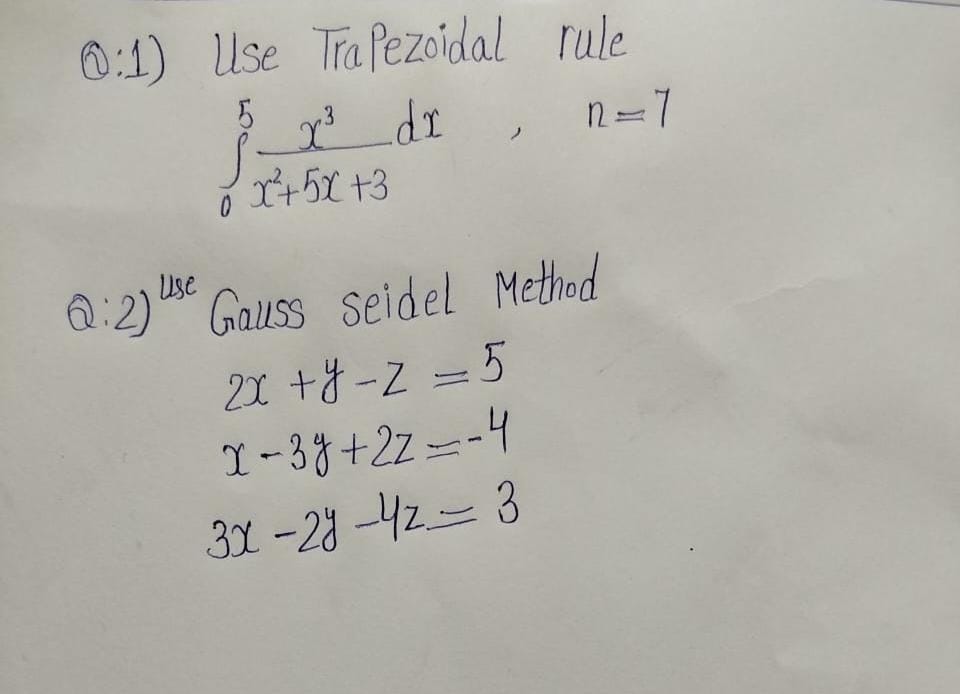 Q:1) Use Trapezoidal rule
∫₀⁵ x³/(x²+5x+3) dx , n=7
Q:2) Use Gauss seidel Method
2x + y - z = 5
x - 3y + 2z = -4
3x - 2y - 4z = 3